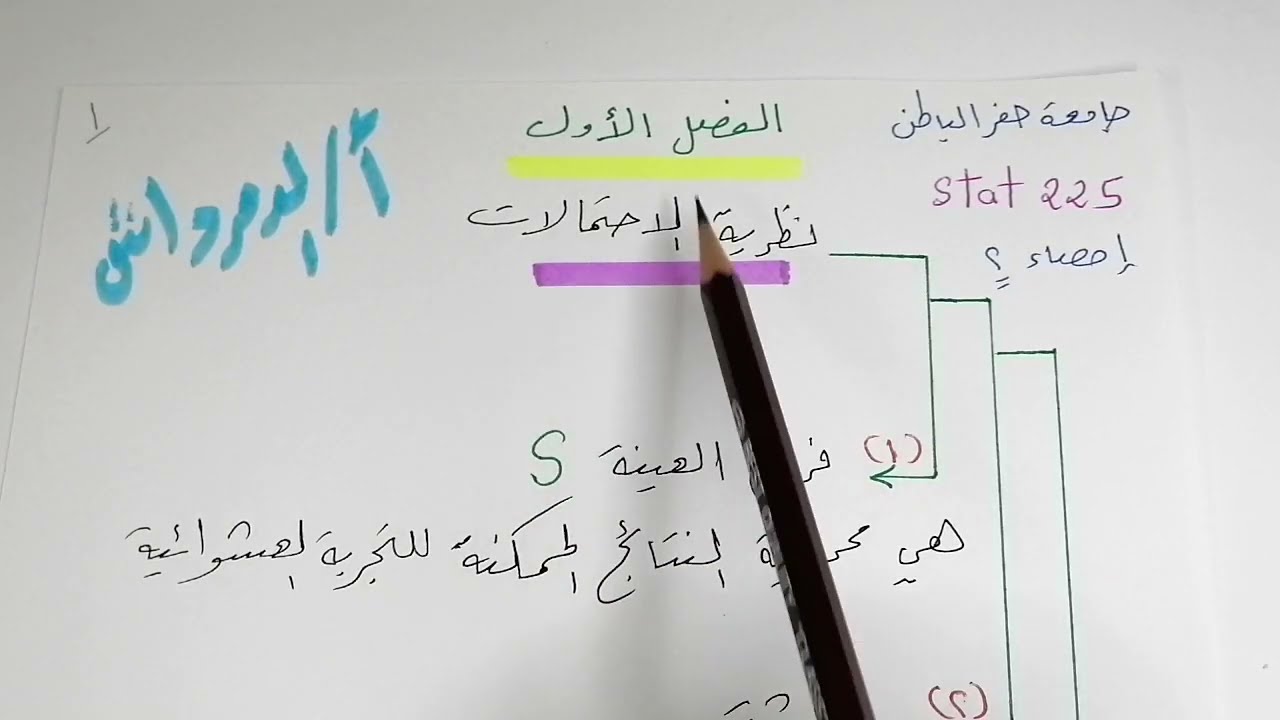 جامعة حفر الباطن
Stat 225
إحصاء ؟
الفصل الأول
نظرية الاحتمالات
١
(١) العينة S
هي النتائج الممكنة للتجربة العشوائية
(٢)